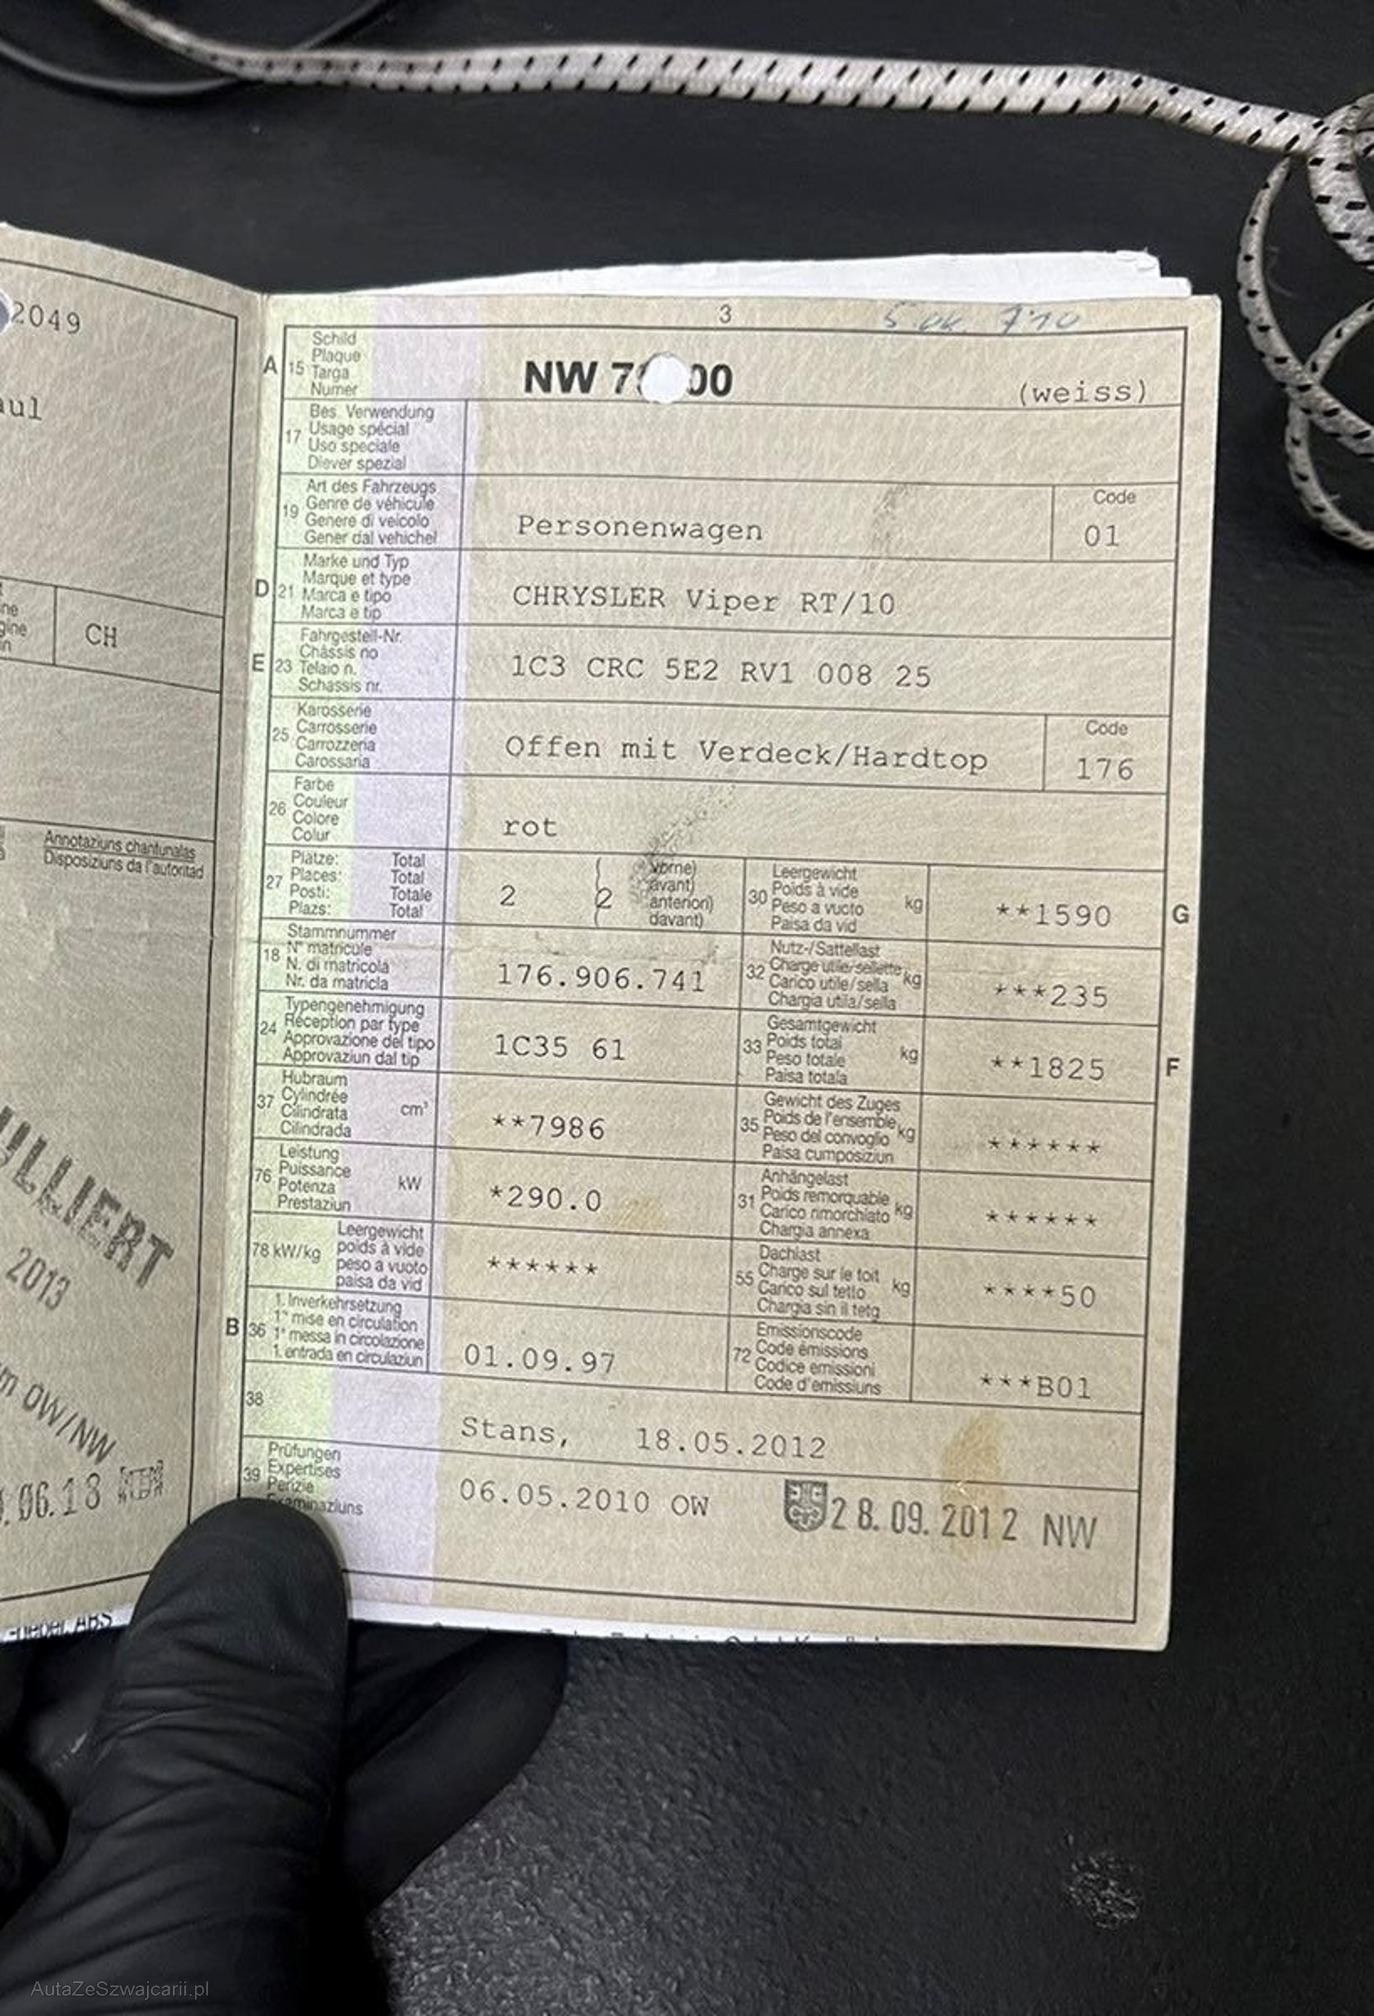 2049
aul
CH
Annotaziuns chantunalas
Disposiziuns da l'autoritad
ULLIERT
2013
OW/NW
.06.13
3
A 15 Schild
Plaque
Targa
Numer
NW 7 00
(weiss)
17 Bes. Verwendung
Usage spécial
Uso speciale
Diever spezial
19 Art des Fahrzeugs
Genre de véhicule
Genere di veicolo
Gener dal vehichel
Personenwagen
Code
01
D 21 Marke und Typ
Marque et type
Marca e tipo
Marca e tip
CHRYSLER Viper RT/10
E 23 Fahrgestell-Nr.
Châssis no
Telaio n.
Schassis nr.
1C3 CRC 5E2 RV1 008 25
25 Karosserie
Carrosserie
Carrozzeria
Carossaria
Offen mit Verdeck/Hardtop
Code
176
26 Farbe
Couleur
Colore
Colur
rot
27 Plätze: Total
Places: Total
Posti: Totale
Plazs: Total
2
2
vorne)
avant)
anteriori)
davant)
30 Leergewicht
Poids à vide
Peso a vuoto
Paisa da vid
kg
**1590
G
18 Stammnummer
N° matricule
N. di matricola
Nr. da matricla
176.906.741
32 Nutz-/Sattellast
Charge utile/sellette
Carico utile/sella
Chargia utila/sella
kg
***235
24 Typengenehmigung
Réception par type
Approvazione del tipo
Approvaziun dal tip
1C35 61
33 Gesamtgewicht
Poids total
Peso totale
Paisa totala
kg
**1825
F
37 Hubraum
Cylindrée
Cilindrata
Cilindrada
cm³
**7986
35 Gewicht des Zuges
Poids de l'ensemble
Peso del convoglio
Paisa cumposiziun
kg
******
76 Leistung
Puissance
Potenza
Prestaziun
kW
*290.0
31 Anhängelast
Poids remorquable
Carico rimorchiato
Chargia annexa
kg
******
78 kW/kg
Leergewicht
poids à vide
peso a vuoto
paisa da vid
******
55 Dachlast
Charge sur le toit
Carico sul tetto
Chargia sin il tetg
kg
****50
B 36 1. Inverkehrsetzung
1re mise en circulation
1a messa in circolazione
1. entrada en circulaziun
01.09.97
72 Emissionscode
Code émissions
Codice emissioni
Code d'emissiuns
***B01
38
Stans, 18.05.2012
39 Prüfungen
Expertises
Perizie
Examinaziuns
06.05.2010 OW
28.09.2012 NW
ABS
AutaZeSzwajcarii.pl